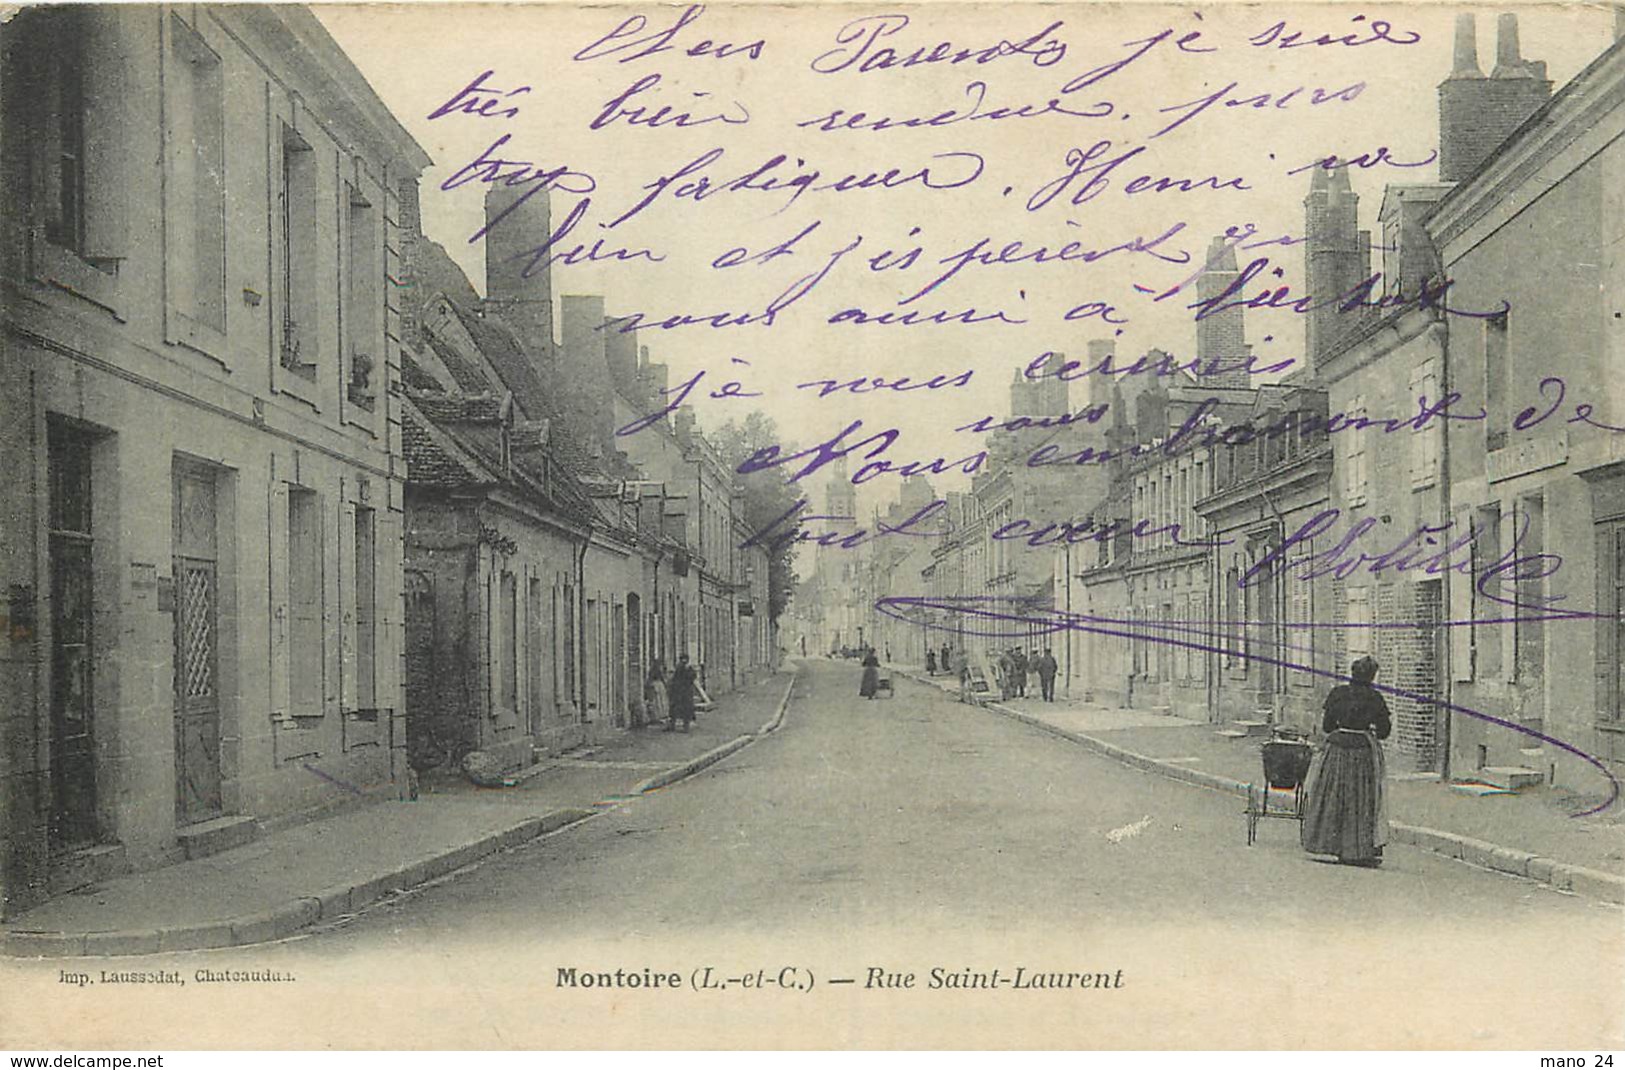 Chers Parents je suie
très bien rendue. pas
trop fatiguer. Henri va
bien et j'espèrent que
vous aussi à bientot
je vous ecrirais
Nous vous embrassont de
tout cœur Clotilde
Imp. Laussedat, Chateaudun.
Montoire (L.-et-C.) — Rue Saint-Laurent
www.delcampe.net
mano 24